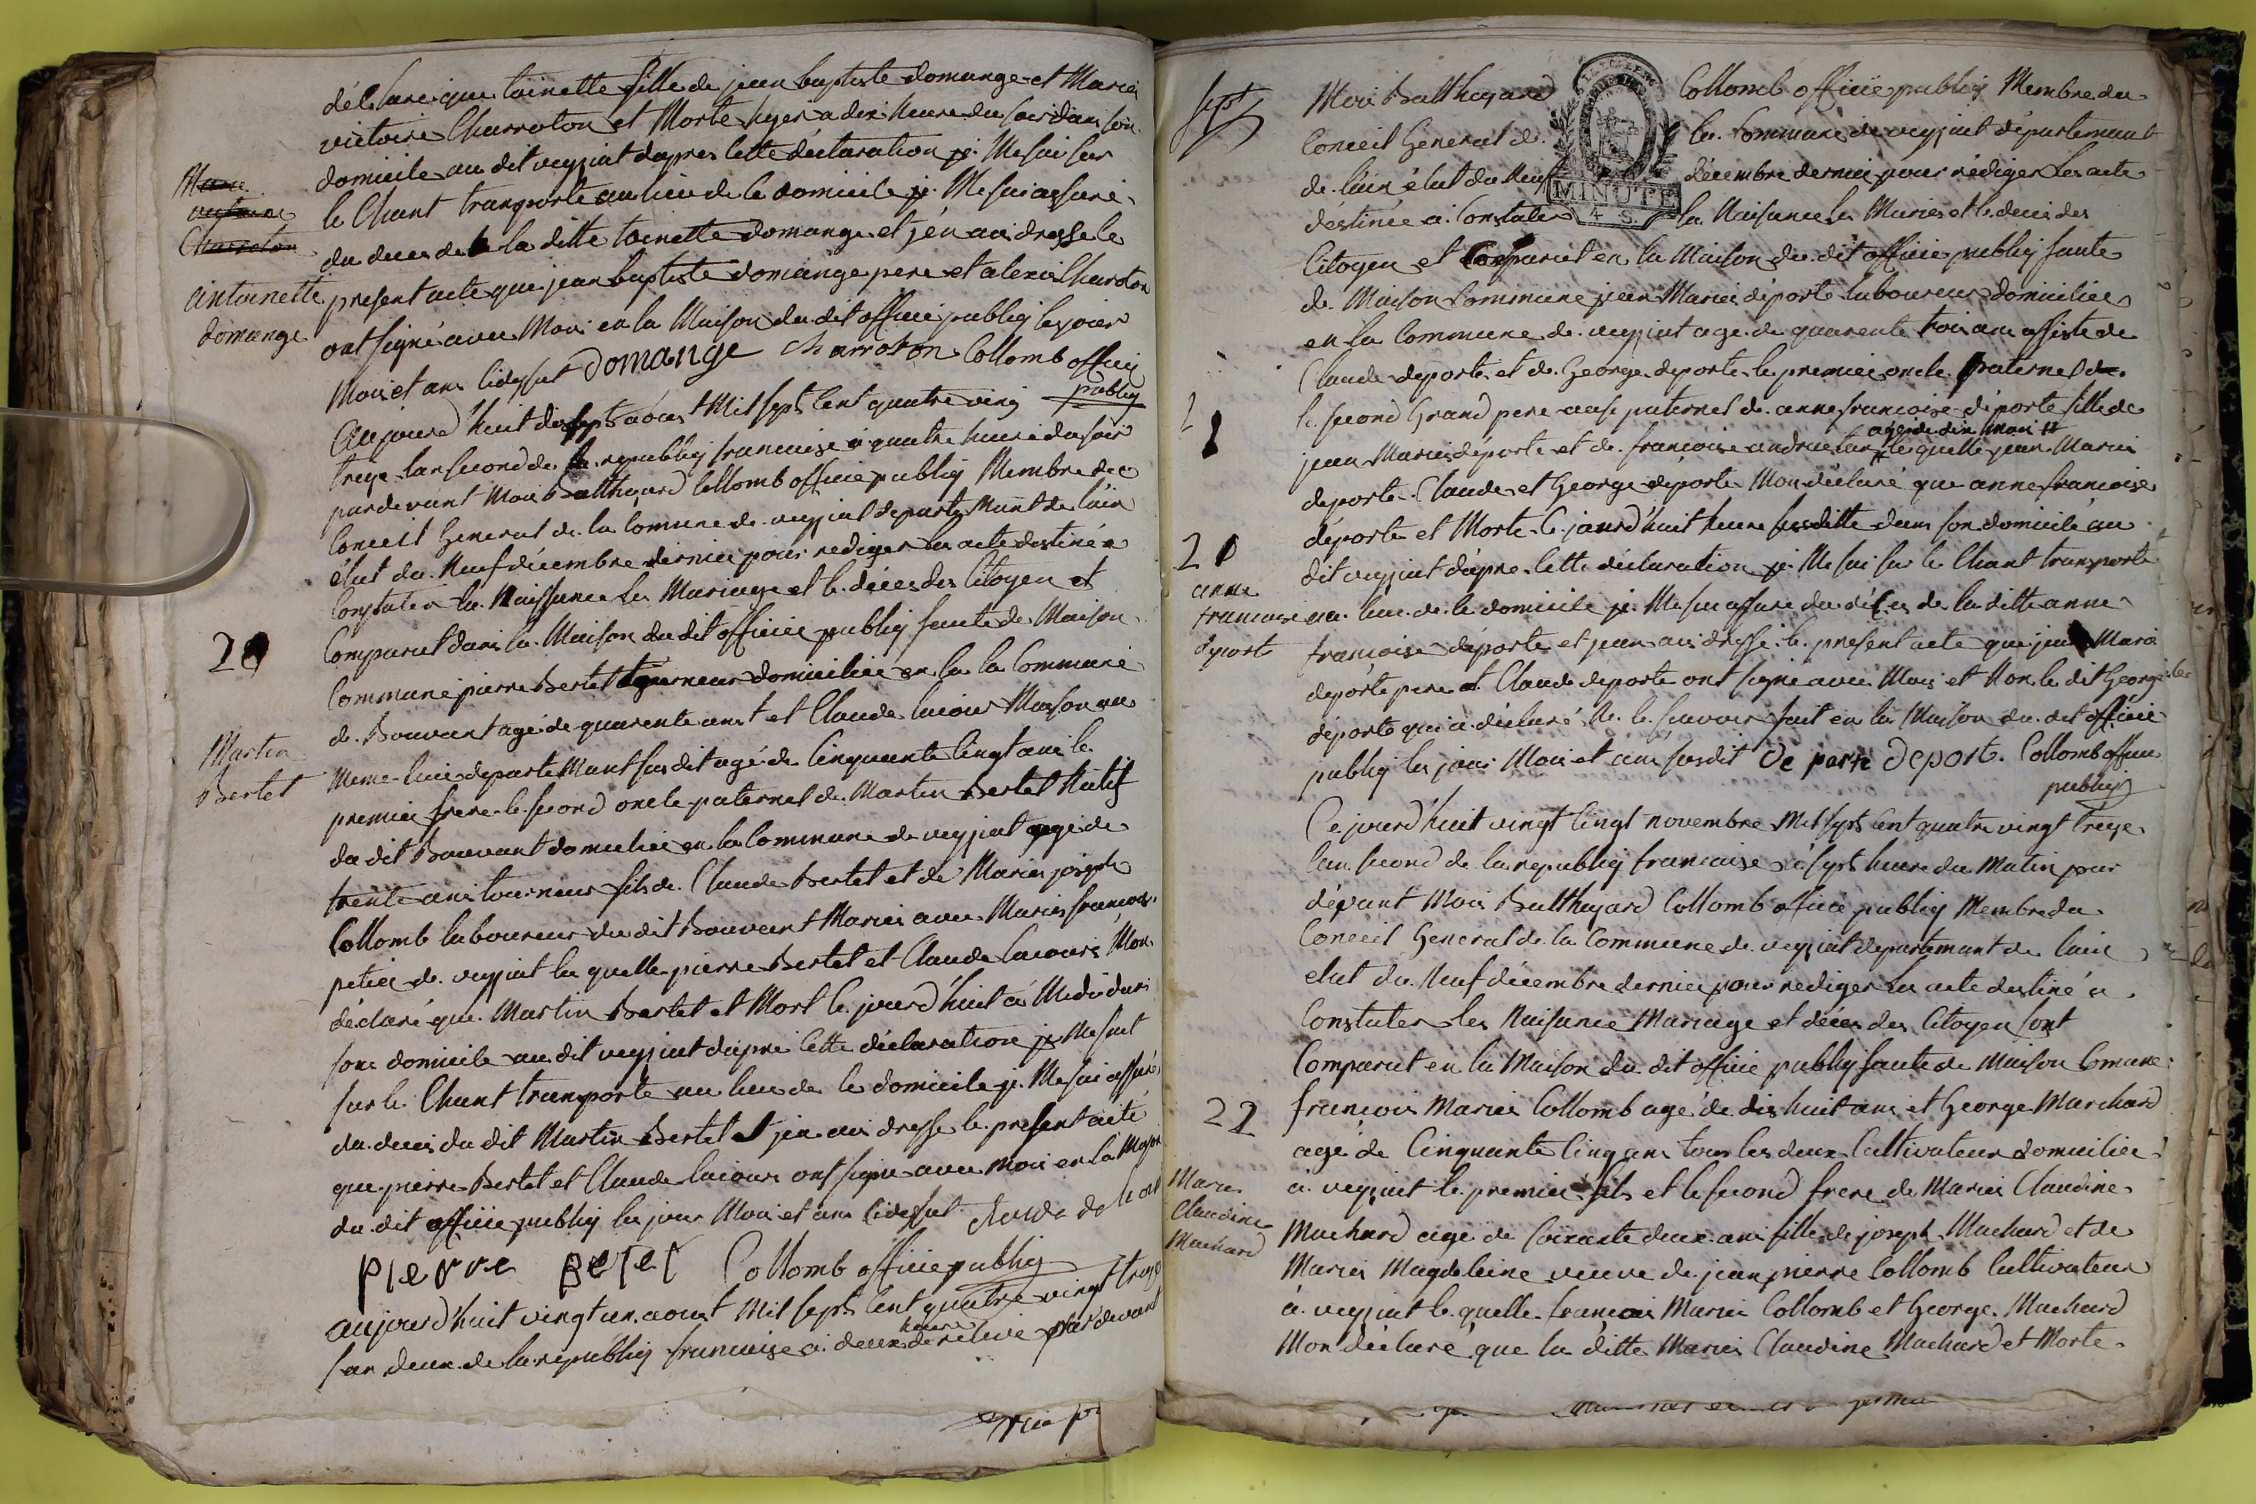 déclare que toinette fille de jean baptiste domange et Marie
victoire Charroton et Morte hyer a dix heure du soir dans son
domicile au dit veyziat dapres cette déclaration je Me sui sur
le Chant transporte au lieu de le domicile je Me sui assuré
du deces de la ditte toinette domange et jén ai dresse le
present acte que jean baptiste domange pere et alexis Charoton
ont signé avec Moi en la Maison du dit officie publiq les jour
Mois et ans cidessut Domange Charroton Collomb officie
publiq
Marie
victoire
Charroton
antoinette
domange
Aujourd'huit dix sept aoust Mil sept cent quatre ving
treze lan second de la republiq francaise a quatre heure du soir
par devant Moi Balthazard Collomb officie publiq Membre du
Conceil General de la Comune de veyziat departemant de lain
élut du Neuf décembre dernier pour rediger les acte destiné a
Constater la Naissance les Mariage et le décés des Citoyen et
Comparut dans la Maison du dit officie publiq faute de Maison
Commune pierre Bertet tourneur domiciliée en la la Commune
de Bouvent agé de quarente ans et Claude lacour Maison au
Meme lieu departemant sus dit agé de Cinquante Cingt ans le
premier frere le second oncle paternel de Martin Bertet Natif
du dit Bouvant domicilié en la Commune de veyziat agé de
trente ans tourneur fils de Claude Bertet et de Marie joseph
Collomb laboureur du dit Bouvent Marier avec Marie francoise
petier de veyziat la quelle pierre Bertet et Claude lacour Mon
déclaré que Martin Bertet et Mort le jourd'huit à Midi dans
son domicile au dit veyziat dapré cette déclaration je Me suit
sur le Chant transporte au lieu de le domicile je Me sui assuré
du deces du dit Martin Bertet et jen ai dresse le present acte
que pierre Bertet et Claude lacour ont signe avec Moi en la Maison
du dit officie publiq les jour Moi et ans cidessut Claude
pierre Betet Collomb officie publiq
20
Martin
Bertet
aujourd'huit vingt un aoust Mil sept cent quatre vingt treze
lan deux de la republiq francaise a deux heure de releve par devant
sept
Moi Balthazard Collomb officie publiq Membre du
Conceil General de la Commune de veyziat département
de lain élut du Neuf décembre dernier pour rédiger les acte
déstinée a Constater la Naisance les Maries et le deces des
MINUTE
4 S.
Citoyen et Comparut en la Maison du dit officie publiq faute
de Maison Commune jean Marie déporte laboureur domiciliee
en la Commune de veyziat age de quarente trois ans assiste de
Claude deporte et de George deporte le premier oncle paternel
le second Grand pere ausi paternel de anne francoise déporte fille de
jean Marie déporte et de francoise andrie agée de dix mois la quelle jean Marie
deporte Claude et George déporte Mon déclaré que anne francoise
déporte et Morte le jourd'huit heure susditte dans son domicile au
dit veyziat dapre cette déclaration je Me sui sur le Chant transporte
au lieu de le domicile je Me sui assure du décés de la ditte anne
francoise déporte et jean ai dressé le present acte que jean Marie
deporte pere et Claude deporte ont signe avec Moi et Non le dit George
déporte qui a déclaré Ne le scavoir fait en la Maison du dit officie
publiq les jour Moi et ans susdit de porte deporte Collomb officie
publiq
21
anne
francoise
déporte
Ce jourd'huit vingt Cingt novembre Mil sept cent quatre vingt treze
lan second de la republiq francaise a sept heure du Matin par
dévant Moi Balthazard Collomb officie publiq Membre du
Conceil General de la Commune de veyziat departemant de lain
elut du Neuf décembre dernier pour rediger les acte destiné a
Constater les Naisance Mariage et décés des Citoyen sont
Comparut en la Maison du dit officie publiq faute de Maison Comune
francois Marie Collomb agé de dix huit ans et George Marchard
agé de Cinquante Cinq ans tous les deux Cultivateur domicilier
a veyziat le premier fils et le second frere de Marie Claudine
Machard agé de Coixante deux ans fille de joseph Machard et de
Marie Magdeleine veuve de jean pierre Collomb Cultivateur
a veyziat le quelle francois Marie Collomb et George Machard
Mon déclaré que la ditte Marie Claudine Machard et Morte
22
Marie
Claudine
Machard